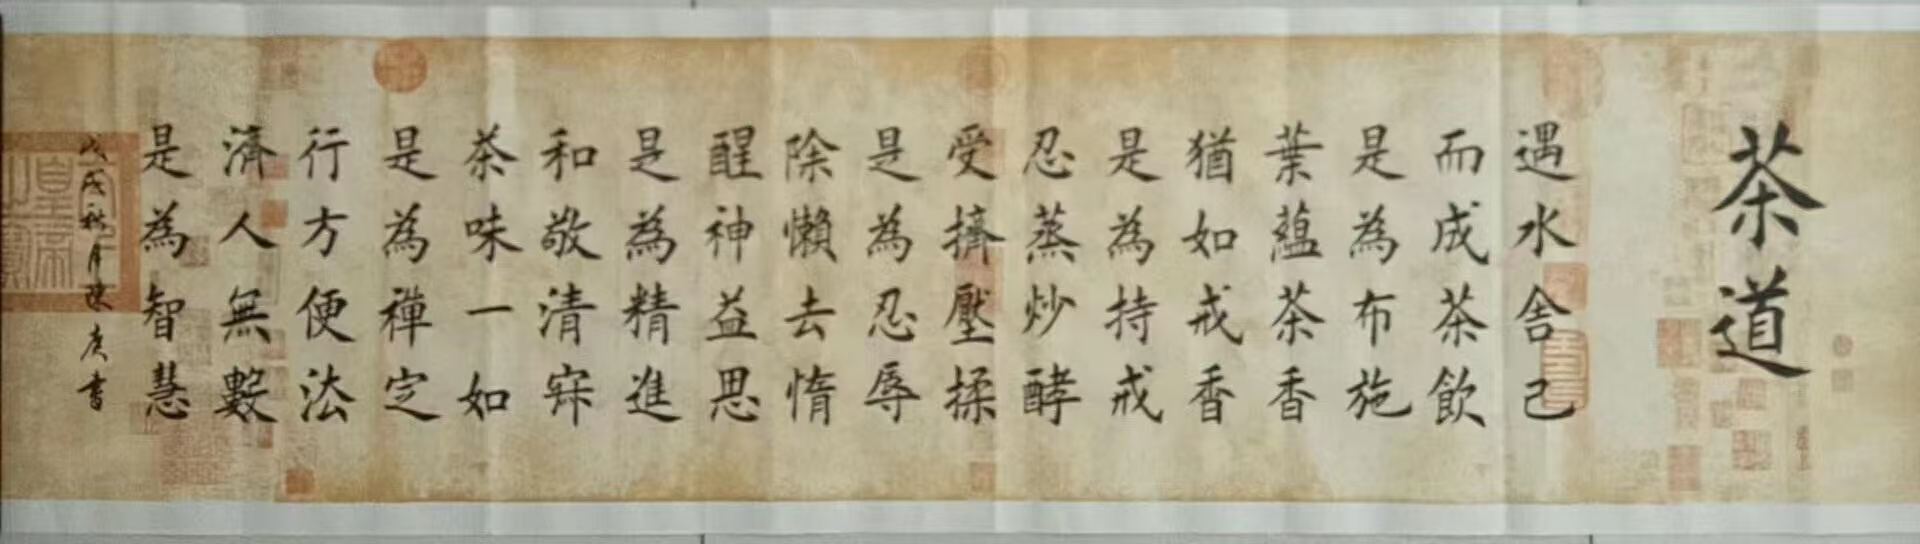 茶道
遇水舍己
而成茶飲
是為布施
葉蘊茶香
猶如戒香
是為持戒
忍蒸炒酵
受擠壓揉
是為忍辱
除懶去惰
醒神益思
是為精進
和敬清寂
茶味一如
是為禪定
行方便法
濟人無數
是為智慧
戊戌秋月陳庚書